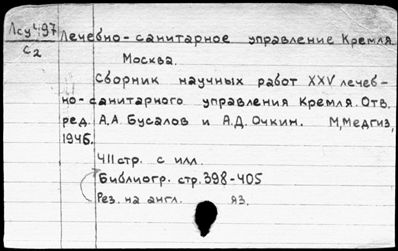 Лсу497
С2
Лечебно-санитарное управление Кремля.
Москва.
Сборник научных работ XXV лечеб-
но-санитарного управления Кремля. Отв.
ред. А.А. Бусалов и А.Д. Очкин. М, Медгиз,
1946.
411 стр. с илл.
Библиогр. стр. 398-405
Рез. на англ. яз.